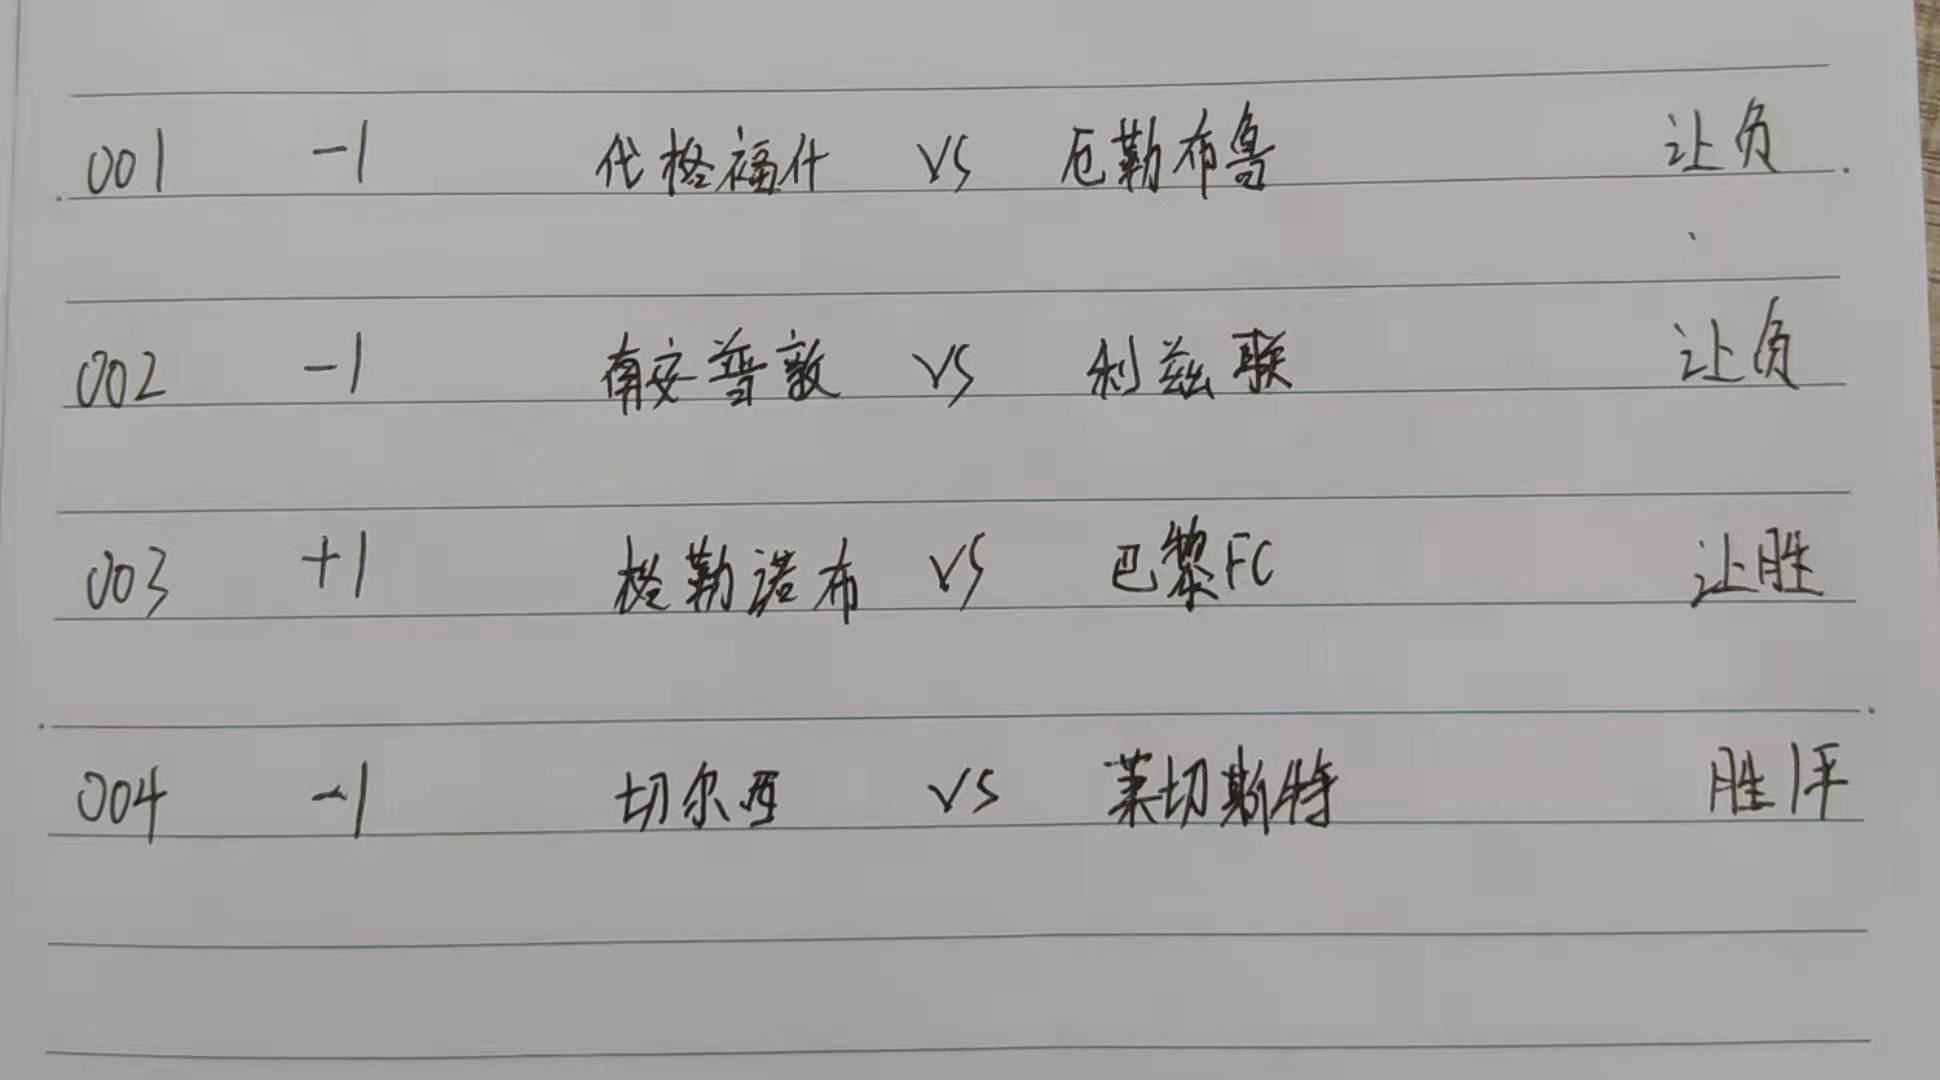 001 -1 代格福什 VS 厄勒布鲁 让负
002 -1 南安普敦 VS 利兹联 让负
003 +1 格勒诺布 VS 巴黎FC 让胜
004 -1 切尔西 VS 莱切斯特 胜1平